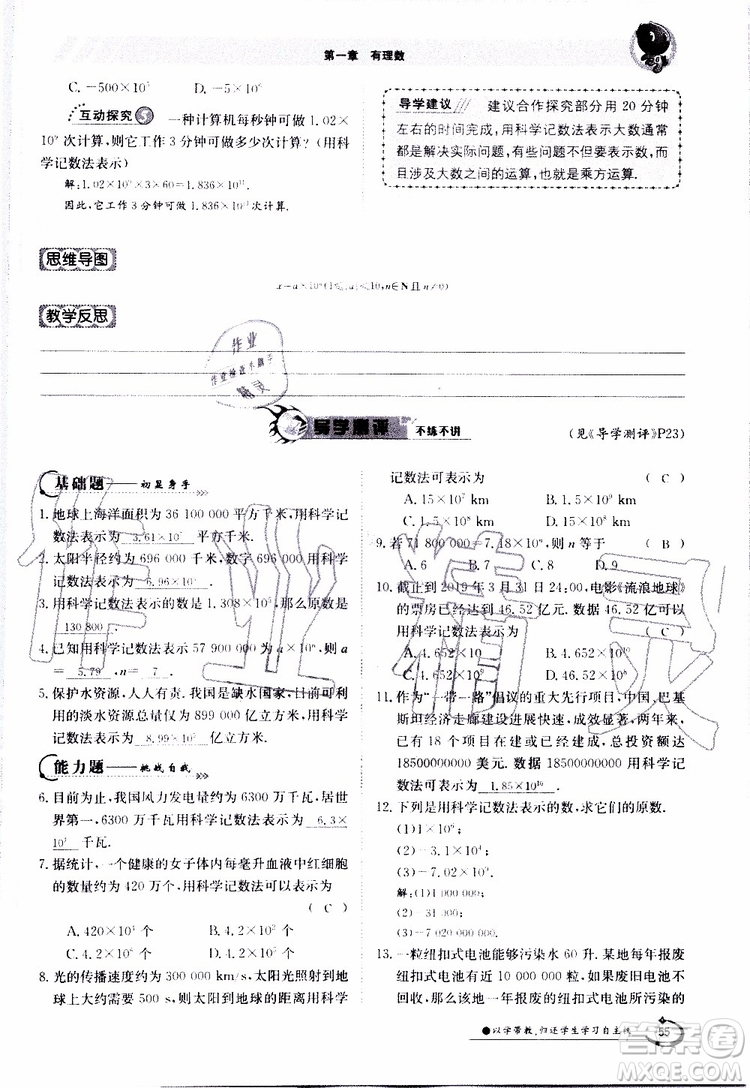 第一章 有理数
C. −500×10⁵ D. −5×10⁶
互动探究5 一种计算机每秒钟可做 1.02×
10⁹ 次计算,则它工作 3 分钟可做多少次计算?(用科
学记数法表示)
解:1.02×10⁹×3×60=1.836×10¹¹.
因此,它工作 3 分钟可做 1.836×10¹¹ 次计算.
导学建议 建议合作探究部分用 20 分钟
左右的时间完成,用科学记数法表示大数通常
都是解决实际问题,有些还要比较大小,从而
且涉及大数的运算,就是乘方运算.
思维导图
教学反思
导学测评 不练不讲
(见《导学测评》P23)
基础题——初显身手
1. 地球上海洋面积为 36 100 000 平方千米,用科学记
数法表示为 3.61×10⁷ 平方千米.
2. 太阳半径约为 696 000 千米,数字 696 000 用科学
记数法表示为 6.96×10⁵ .
3. 用科学记数法表示的数是 1.308×10⁵,则原数是
130 800 .
4. 已知用科学记数法表示 57 900 000 为 a×10ⁿ,则 a
= 5.79 ,n= 7 .
5. 保护水资源,人人有责.我国是缺水国家,目前可利
用的淡水资源总量仅为 899 000 亿立方米,用科学记数法
表示为 8.99×10⁵ 亿立方米.
能力题——挑战自我
6. 目前为止,我国风力发电量约为 6300 万千瓦,居世
界第一,6300 万千瓦用科学记数法可表示为 6.3×
10⁷ 千瓦.
7. 据统计,一个健康的女子体内每毫升血液中红细胞
的数量约为 420 万个,用科学记数法可以表示为
( C )
A. 420×10⁴ 个 B. 4.2×10² 个
C. 4.2×10⁶ 个 D. 42×10⁵ 个
8. 光的传播速度约为 300 000 km/s,太阳光照射到地
球上大约需要 500 s,则太阳到地球的距离用科学
记数法可表示为 ( C )
A. 15×10⁷ km B. 15×10⁹ km
C. 1.5×10⁸ km D. 1.5×10⁹ km
9. 若 71 800 000=7.18×10ⁿ,则 n 等于 ( B )
A. 6 B. 7 C. 8 D. 9
10. 截止到 2019 年 3 月 31 日 24:00,电影《流浪地球》
的票房已经达到约 46.52 亿元.数据 46.52 亿可以
用科学记数法表示为 ( C )
A. 4.652×10 B. 4.652×10⁸
C. 4.652×10⁹ D. 46.52×10⁸
11. 作为“一带一路”倡议的重大先行项目,中国、巴基
斯坦经济走廊建设进展快速,成效显著,两年来,
已有 18 个项目在建或建成,总投资额达到
18500000000 美元.数据 18500000000 用科学记
数法可表示为 1.85×10¹⁰ .
12. 下列是用科学记数法表示的数,求它们的原数.
(1)1×10⁶;
(2)−3.1×10⁴;
(3)−7.02×10⁹.
解:(1)1 000 000;
(2)−31 000;
(3)−7 020 000 000.
13. 一粒纽扣式电池能够污染水 60 升.某地每年报废
的纽扣式电池有近 10 000 000 粒,如果废旧电池不
回收,那么该地一年报废的纽扣式电池所污染的
●以学带教,归还学生学习自主性 55
作业
作业检查小助手
精灵
作业精灵
MXQE.COM